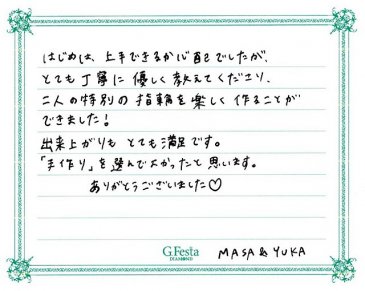 はじめは、上手できるか心配でしたが、
とても丁寧に優しく教えてくださり、
二人の特別の指輪を楽しく作ることが
できました!
出来上がりも とても満足です。
「手作り」を選んでよかったと思います。
ありがとうございました♡
G.Festa
DIAMOND
MASA & YUKA